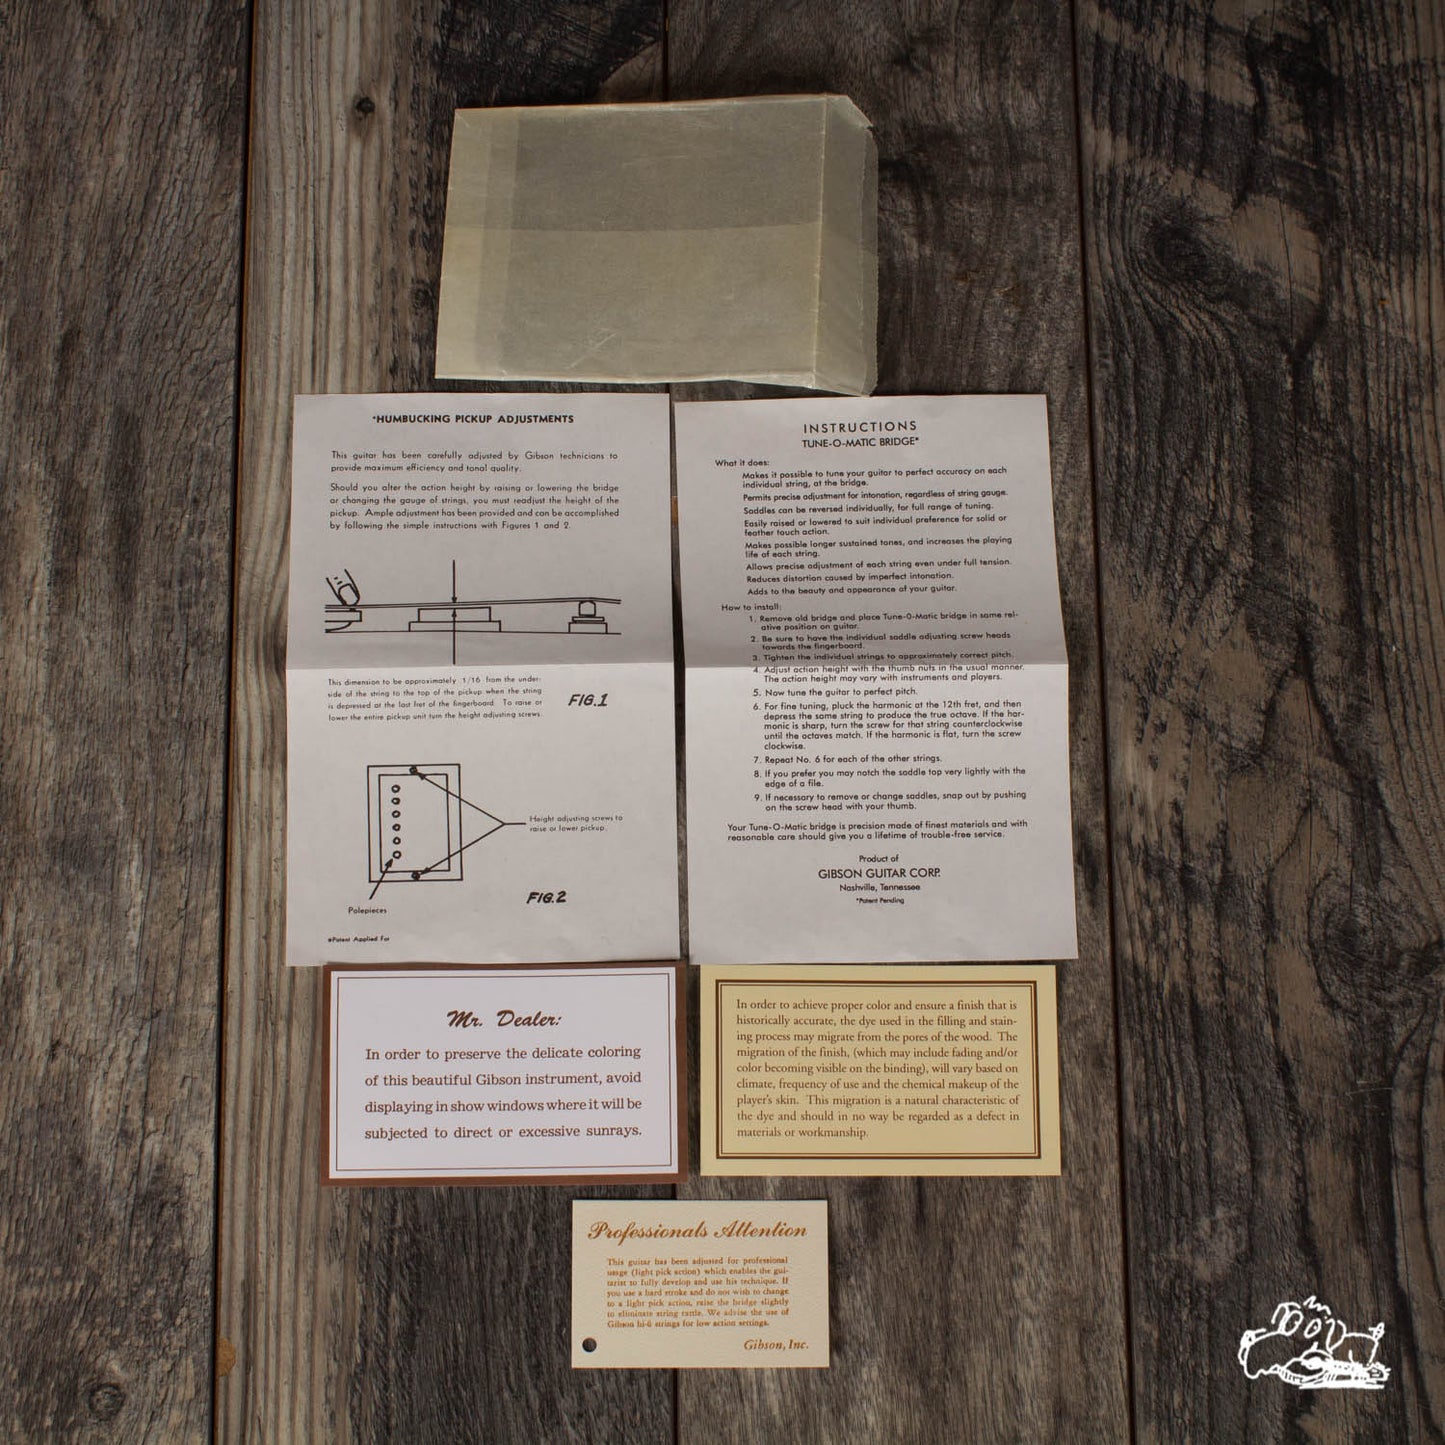 *HUMBUCKING PICKUP ADJUSTMENTS
This guitar has been carefully adjusted by Gibson technicians to
provide maximum efficiency and tonal quality.
Should you alter the action height by raising or lowering the bridge
or changing the gauge of strings, you must readjust the height of the
pickup. Ample adjustment has been provided and can be accomplished
by following the simple instructions with Figures 1 and 2.
This dimension to be approximately 1/16 from the under-
side of the string to the top of the pickup when the string
is depressed at the last fret of the fingerboard. To raise or
lower the entire pickup unit turn the height adjusting screws.
FIG.1
Height adjusting screws to
raise or lower pickup.
FIG.2
Polepieces
*Patent Applied For
INSTRUCTIONS
TUNE-O-MATIC BRIDGE*
What it does:
Makes it possible to tune your guitar to perfect accuracy on each
individual string, at the bridge.
Permits precise adjustment for intonation, regardless of string gauge.
Saddles can be reversed individually, for full range of tuning.
Easily raised or lowered to suit individual preference for solid or
feather touch action.
Makes possible longer sustained tones, and increases the playing
life of each string.
Allows precise adjustment of each string even under full tension.
Reduces distortion caused by imperfect intonation.
Adds to the beauty and appearance of your guitar.
How to install:
1. Remove old bridge and place Tune-O-Matic bridge in same rel-
ative position on guitar.
2. Be sure to have the individual saddle adjusting screw heads
towards the fingerboard.
3. Tighten the individual strings to approximately correct pitch.
4. Adjust action height with the thumb nuts in the usual manner.
The action height may vary with instruments and players.
5. Now tune the guitar to perfect pitch.
6. For fine tuning, pluck the harmonic at the 12th fret, and then
depress the same string to produce the true octave. If the har-
monic is sharp, turn the screw for that string counterclockwise
until the octaves match. If the harmonic is flat, turn the screw
clockwise.
7. Repeat No. 6 for each of the other strings.
8. If you prefer you may notch the saddle top very lightly with the
edge of a file.
9. If necessary to remove or change saddles, snap out by pushing
on the screw head with your thumb.
Your Tune-O-Matic bridge is precision made of finest materials and with
reasonable care should give you a lifetime of trouble-free service.
Product of
GIBSON GUITAR CORP.
Nashville, Tennessee
*Patent Pending
Mr. Dealer:
In order to preserve the delicate coloring
of this beautiful Gibson instrument, avoid
displaying in show windows where it will be
subjected to direct or excessive sunrays.
In order to achieve proper color and ensure a finish that is
historically accurate, the dye used in the filling and stain-
ing process may migrate from the pores of the wood. The
migration of the finish, (which may include fading and/or
color becoming visible on the binding), will vary based on
climate, frequency of use and the chemical makeup of the
player's skin. This migration is a natural characteristic of
the dye and should in no way be regarded as a defect in
materials or workmanship.
Professionals Attention
This guitar has been adjusted for professional
usage (light pick action) which enables the gui-
tarist to fully develop and use his technique. If
you use a hard stroke and do not wish to change
to a light pick action, raise the bridge slightly
to eliminate string rattle. We advise the use of
Gibson hi-fi strings for low action settings.
Gibson, Inc.